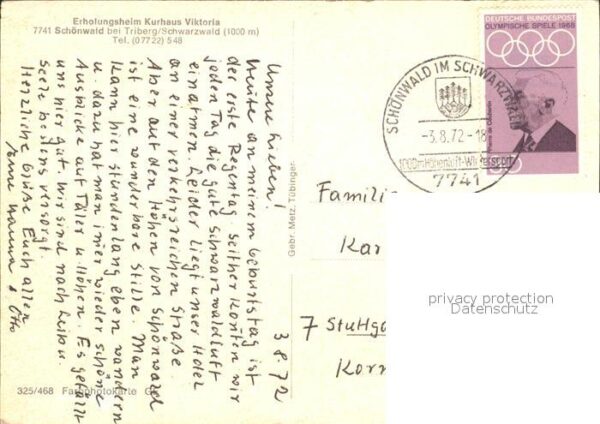 Erholungsheim Kurhaus Viktoria
7741 Schönwald bei Triberg/Schwarzwald (1000 m)
Tel. (07722) 548
3.8.72
Unsere Lieben!
Heute an meinem Geburtstag ist
der erste Regentag. Seither konnten wir
jeden Tag die gute Schwarzwaldluft
einatmen. Leider liegt unser Hotel
an einer verkehrsreichen Straße.
Aber auf den Höhen von Schönwald
ist eine wunderbare Stille. Man
kann hier stundenlang eben wandern
u. dazu hat man immer wieder schöne
Ausblicke auf Täler u. Höhen. Es gefällt
uns hier gut. Wir sind nach Leib u.
Seele bestens versorgt.
Herzliche Grüße Euch allen
Eure Hanna & Otto
325/468 Farbphotokarte
Gebr. Metz, Tübingen
DEUTSCHE BUNDESPOST
OLYMPISCHE SPIELE 1968
Pierre de Coubertin
SCHÖNWALD IM SCHWARZWALD
-3.8.72-18
1000m Höhenluft-Wintersport
7741
Famili
Kar
7 Stuttga
Korn
privacy protection
Datenschutz